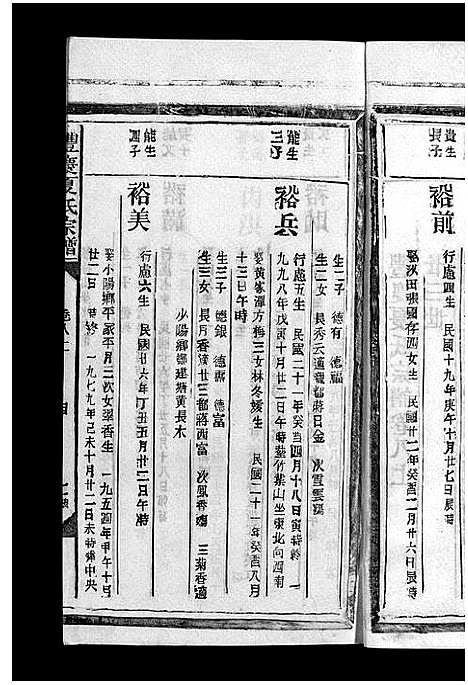 貴生
長子
裕前
行處 生 民國二十九年庚申十月廿七日辰時
娶洑田張國春四女生 民國廿二年癸酉二月廿六日辰時
生二子 德有 德福
生二女 長秀云適 蔣日金 次雪雲殤
能生
三子
裕兵
行處五生 民國二十一年癸 四月十八日寅時終 一
九九八年戊寅十月廿二日午時葬竹葉山坐東北向西南
娶黄家潭方梅三女林冬媛生 民國二十一年癸酉八月
十三日午時
生三子 德銀 德 德富
生三女 長月香適廿三都蔣西富 次鳳香殤 三菊香適
少陽鄉鄉建塘黄長木
能生
四子
裕美
行處六生 民國廿六年丁丑五月廿三日午時
娶小陽鄉平家平月三次女翠香生 一九五四年甲午十月
廿二日 時終 一九七九年己未十月廿二日未時葬中央
豐慶夏氏宗譜
卷八